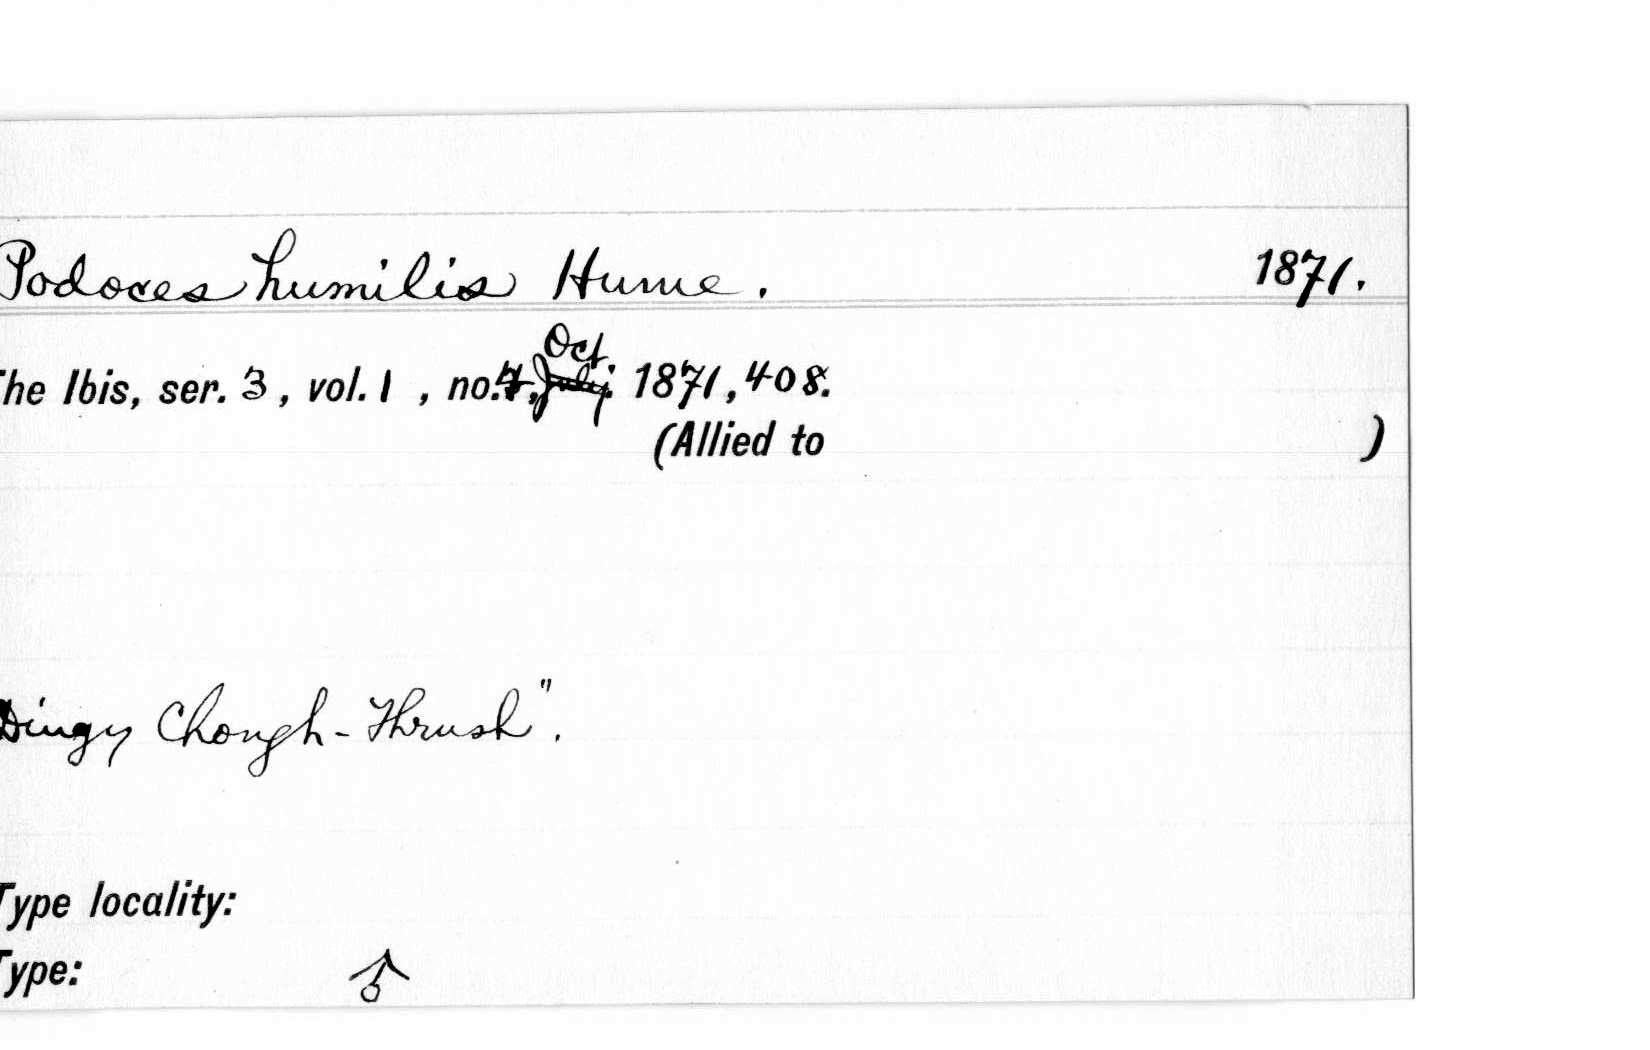 Podoces humilis Hume. 1871.
Oct
The Ibis, ser. 3, vol. 1, no. 4, July. 1871, 408.
(Allied to )
Dingy Chough-Thrush".
Type locality:
Type: ♂